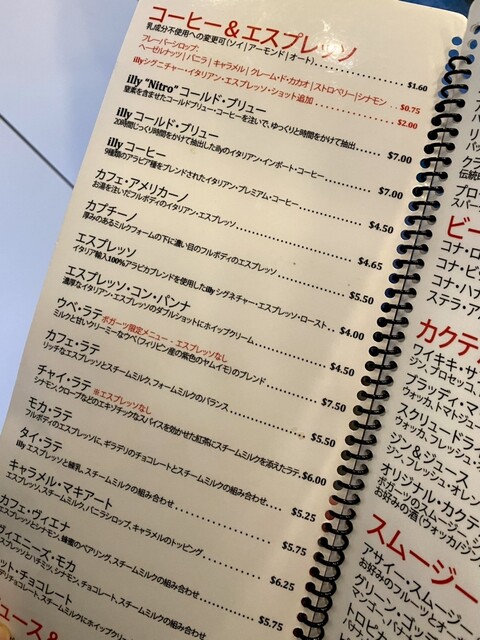 コーヒー&エスプレッソ
乳成分不使用への変更可(ソイ|アーモンド|オート)............$1.60
フレーバーシロップ:
ヘーゼルナッツ|バニラ|キャラメル|クレーム・ド・カカオ|ストロベリー|シナモン...$0.75
illyシグニチャー・イタリアン・エスプレッソ・ショット追加............$2.00
illy "Nitro" コールド・ブリュー
窒素を含ませたコールドブリュー・コーヒーを注いで、ゆっくりと時間をかけて抽出......$7.00
illy コールド・ブリュー
20時間じっくり時間をかけて抽出したillyのイタリアン・インポート・コーヒー......$7.00
illy コーヒー
9種類のアラビア種をブレンドされたイタリアン・プレミアム・コーヒー............$4.50
カフェ・アメリカーノ
お湯を注いだフルボディのイタリアン・エスプレッソ............$4.65
カプチーノ
厚みのあるミルクフォームの下に濃い目のフルボディのエスプレッソ............$5.50
エスプレッソ
イタリア輸入100%アラビカブレンドを使用したillyシグネチャー・エスプレッソ・ロースト..$4.00
エスプレッソ・コン・パンナ
濃厚なイタリアン・エスプレッソのダブルショットにホイップクリーム............$4.50
ウベ・ラテ ボガーツ限定メニュー - エスプレッソなし
ミルクと甘いクリーミーなウベ(フィリピン産の紫色のヤムイモ)のブレンド............$7.50
カフェ・ラテ
リッチなエスプレッソとスチームミルク、フォームミルクのバランス............$5.50
チャイ・ラテ ※エスプレッソなし
シナモンクローブなどのエキゾチックなスパイスを効かせた紅茶にスチームミルクを添えたラテ.$6.00
モカ・ラテ
フルボディのエスプレッソに、ギラデリのチョコレートとスチームミルクの組み合わせ......$5.25
タイ・ラテ
illy エスプレッソと練乳、スチームミルクの組み合わせ............$5.75
キャラメル・マキアート
エスプレッソ、スチームミルク、バニラシロップ、キャラメルのトッピング............$6.25
カフェ・ヴィエナ
エスプレッソとシナモン、蜂蜜のペアリング、スチームミルクの組み合わせ............$5.75
ヴィエニーズ・モカ
エスプレッソとハチミツ、シナモン、チョコレート、スチームミルクの組み合わせ
ット・チョコレート
チョコレート、スチームミルクにホイップクリーム
ュース&
ビー
コナ・ロ
コナ・ビ
コナ・ハナ
ステラ・ア
カクテ
ワイキキ・サ
ジン、プロセッコ、
ブラッディ・マ
ウォッカ、トマトジュー
スクリュードラ
ウォッカ、フレッシュ・
ジン&ジュース
ジン、フレッシュ・オレン
オリジナル・カクテ
ボガーツのスムージー・
お好みの酒(ウォッカ/ジン
スムージー
アサイー・スムージー
お好みのフルーツと
グリーン・ゴッ
マンゴー、パパイ
トロピカ